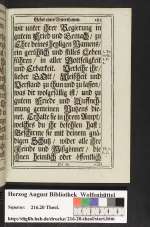 Gebet eines Unterthanen. 185
wir unter ihrer Regierung in
gutem Fried und
Ehre deines heyligen Namens/
ein geruhlich und stilles Leben
führen/ in aller Gottseligkeit
und Erbarkeit. Verleihe ihr/
lieber GOtt/ Weißheit und
Verstand zu thun und zu lassen/
was dir wolgefällig ist/ und zu
gutem Friede und
gemeines Nutzens die-
net. Erhalte sie in ihrem Ampt/
welches du ihr befohlen hast/
Beschirme sie mit deinem gnä-
digen Schutz/ wider alle ihre
Feinde und Mißgönner/ die
ihnen heimlich oder öffentlich
Herzog August Bibliothek Wolfenbüttel
Signatur: 216.20 Theol.